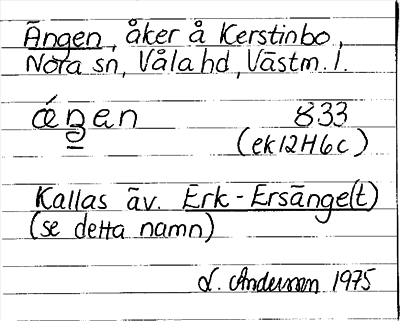 Ängen, åker å Kerstinbo,
Nora sn, Våla hd, Västm. l.
ǽŋen 833
(ek 12H6c)
Kallas äv. Erk-Ersänge(t)
(se detta namn)
L. Andersson 1975